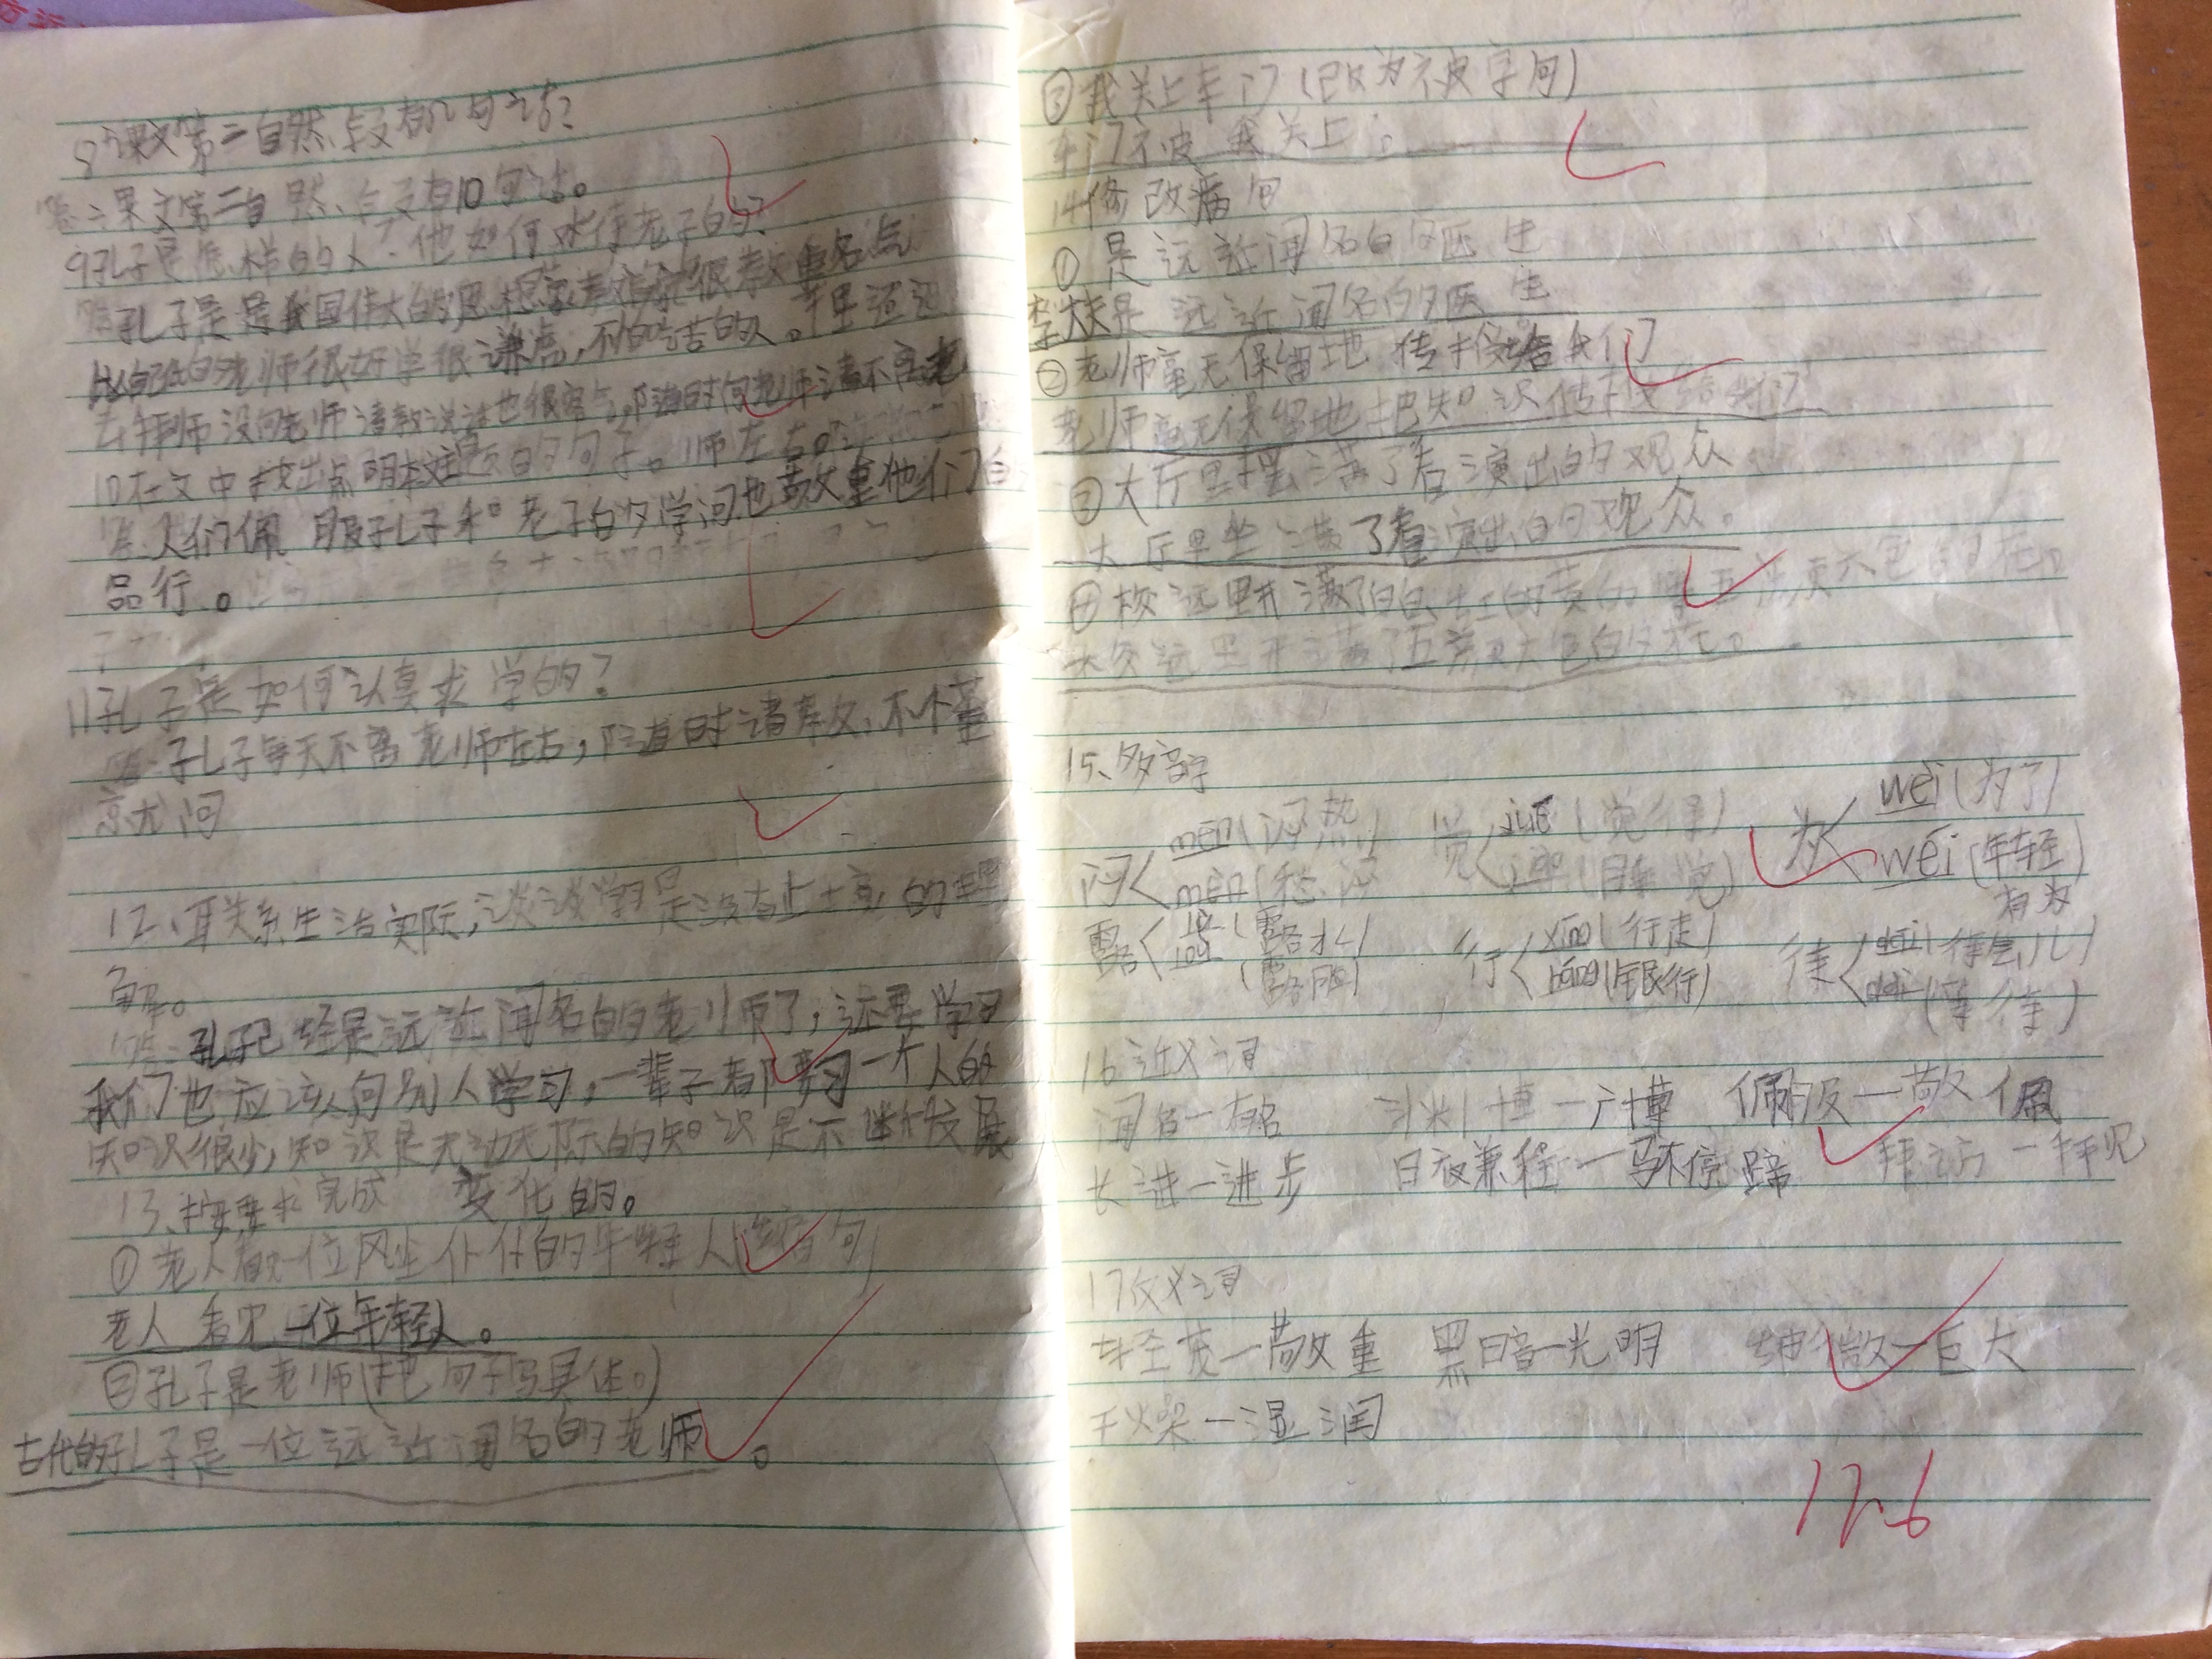 8课文第二自然段有几句话?
答:课文第二自然段有10句话。
9孔子是怎样的人?他如何对待老子的?
答孔子是是我国伟大的思想家教育家很敬重名气
比自己低的老师很好学很谦虚,不怕吃苦的人。千里迢迢
去拜师没向老师请教说话也很客气,随时向老师请不离老
10在文中找出点明本文主题的句子。师左右。
答人们佩服孔子和老子的学问也敬重他们的
品行。
11孔子是如何认真求学的?
答:孔子每天不离老师左右,随时请教,不懂
就问
12、联系生活实际,谈谈学习是没有止境的理
解。
答:孔子已经是远近闻名的老师了,还要学习
我们也应该向别人学习,一辈子都要学习一个人的
知识很少,知识是无边无际的知识是不断发展
13、按要求完成 变化的。
①老人看见一位风尘仆仆的年轻人(缩句)
老人看见一位年轻人。
②孔子是老师(把句子写具体。)
古代的孔子是一位远近闻名的老师。
③我关上车门(改为被字句)
车门被我关上。
14修改病句
①是远近闻名的医生
李大夫是远近闻名的医生
②老师毫无保留地传授给我们
老师毫无保留地把知识传授给我们
③大厅里摆满了看演出的观众
大厅里坐满了看演出的观众。
④校远里开满了白的红的黄的五颜六色的花。
校远里开满了五颜六色的花。
15、多音字
闷 mēn(闷热) 觉 jué(觉得) 为 wèi(为了)
mèn(愁闷) jiào(睡觉) wéi(年轻有为)
露 lù(露水) 行 xíng(行走) 待 dāi(待会儿)
lòu(露脸) háng(银行) dài(等待)
16近义词
闻名—有名 渊博—广博 佩服—敬佩
长进—进步 日夜兼程—马不停蹄 拜访—拜见
17反义词
轻蔑—敬重 黑暗—光明 细微—巨大
干燥—湿润
17.6